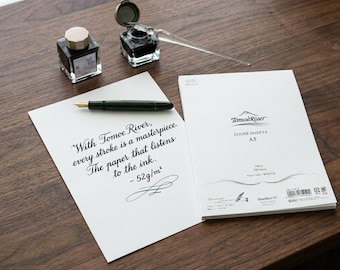 "With Tomoe River,
every stroke is a masterpiece.
The paper that listens
to the ink.
~ 52g/m²
TomoeRiver
LOOSE SHEETS
A5